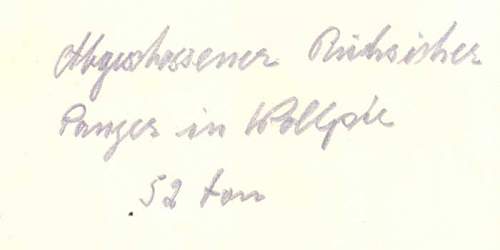 Abgeschossener Rußsischer
Panzer in
52 ton